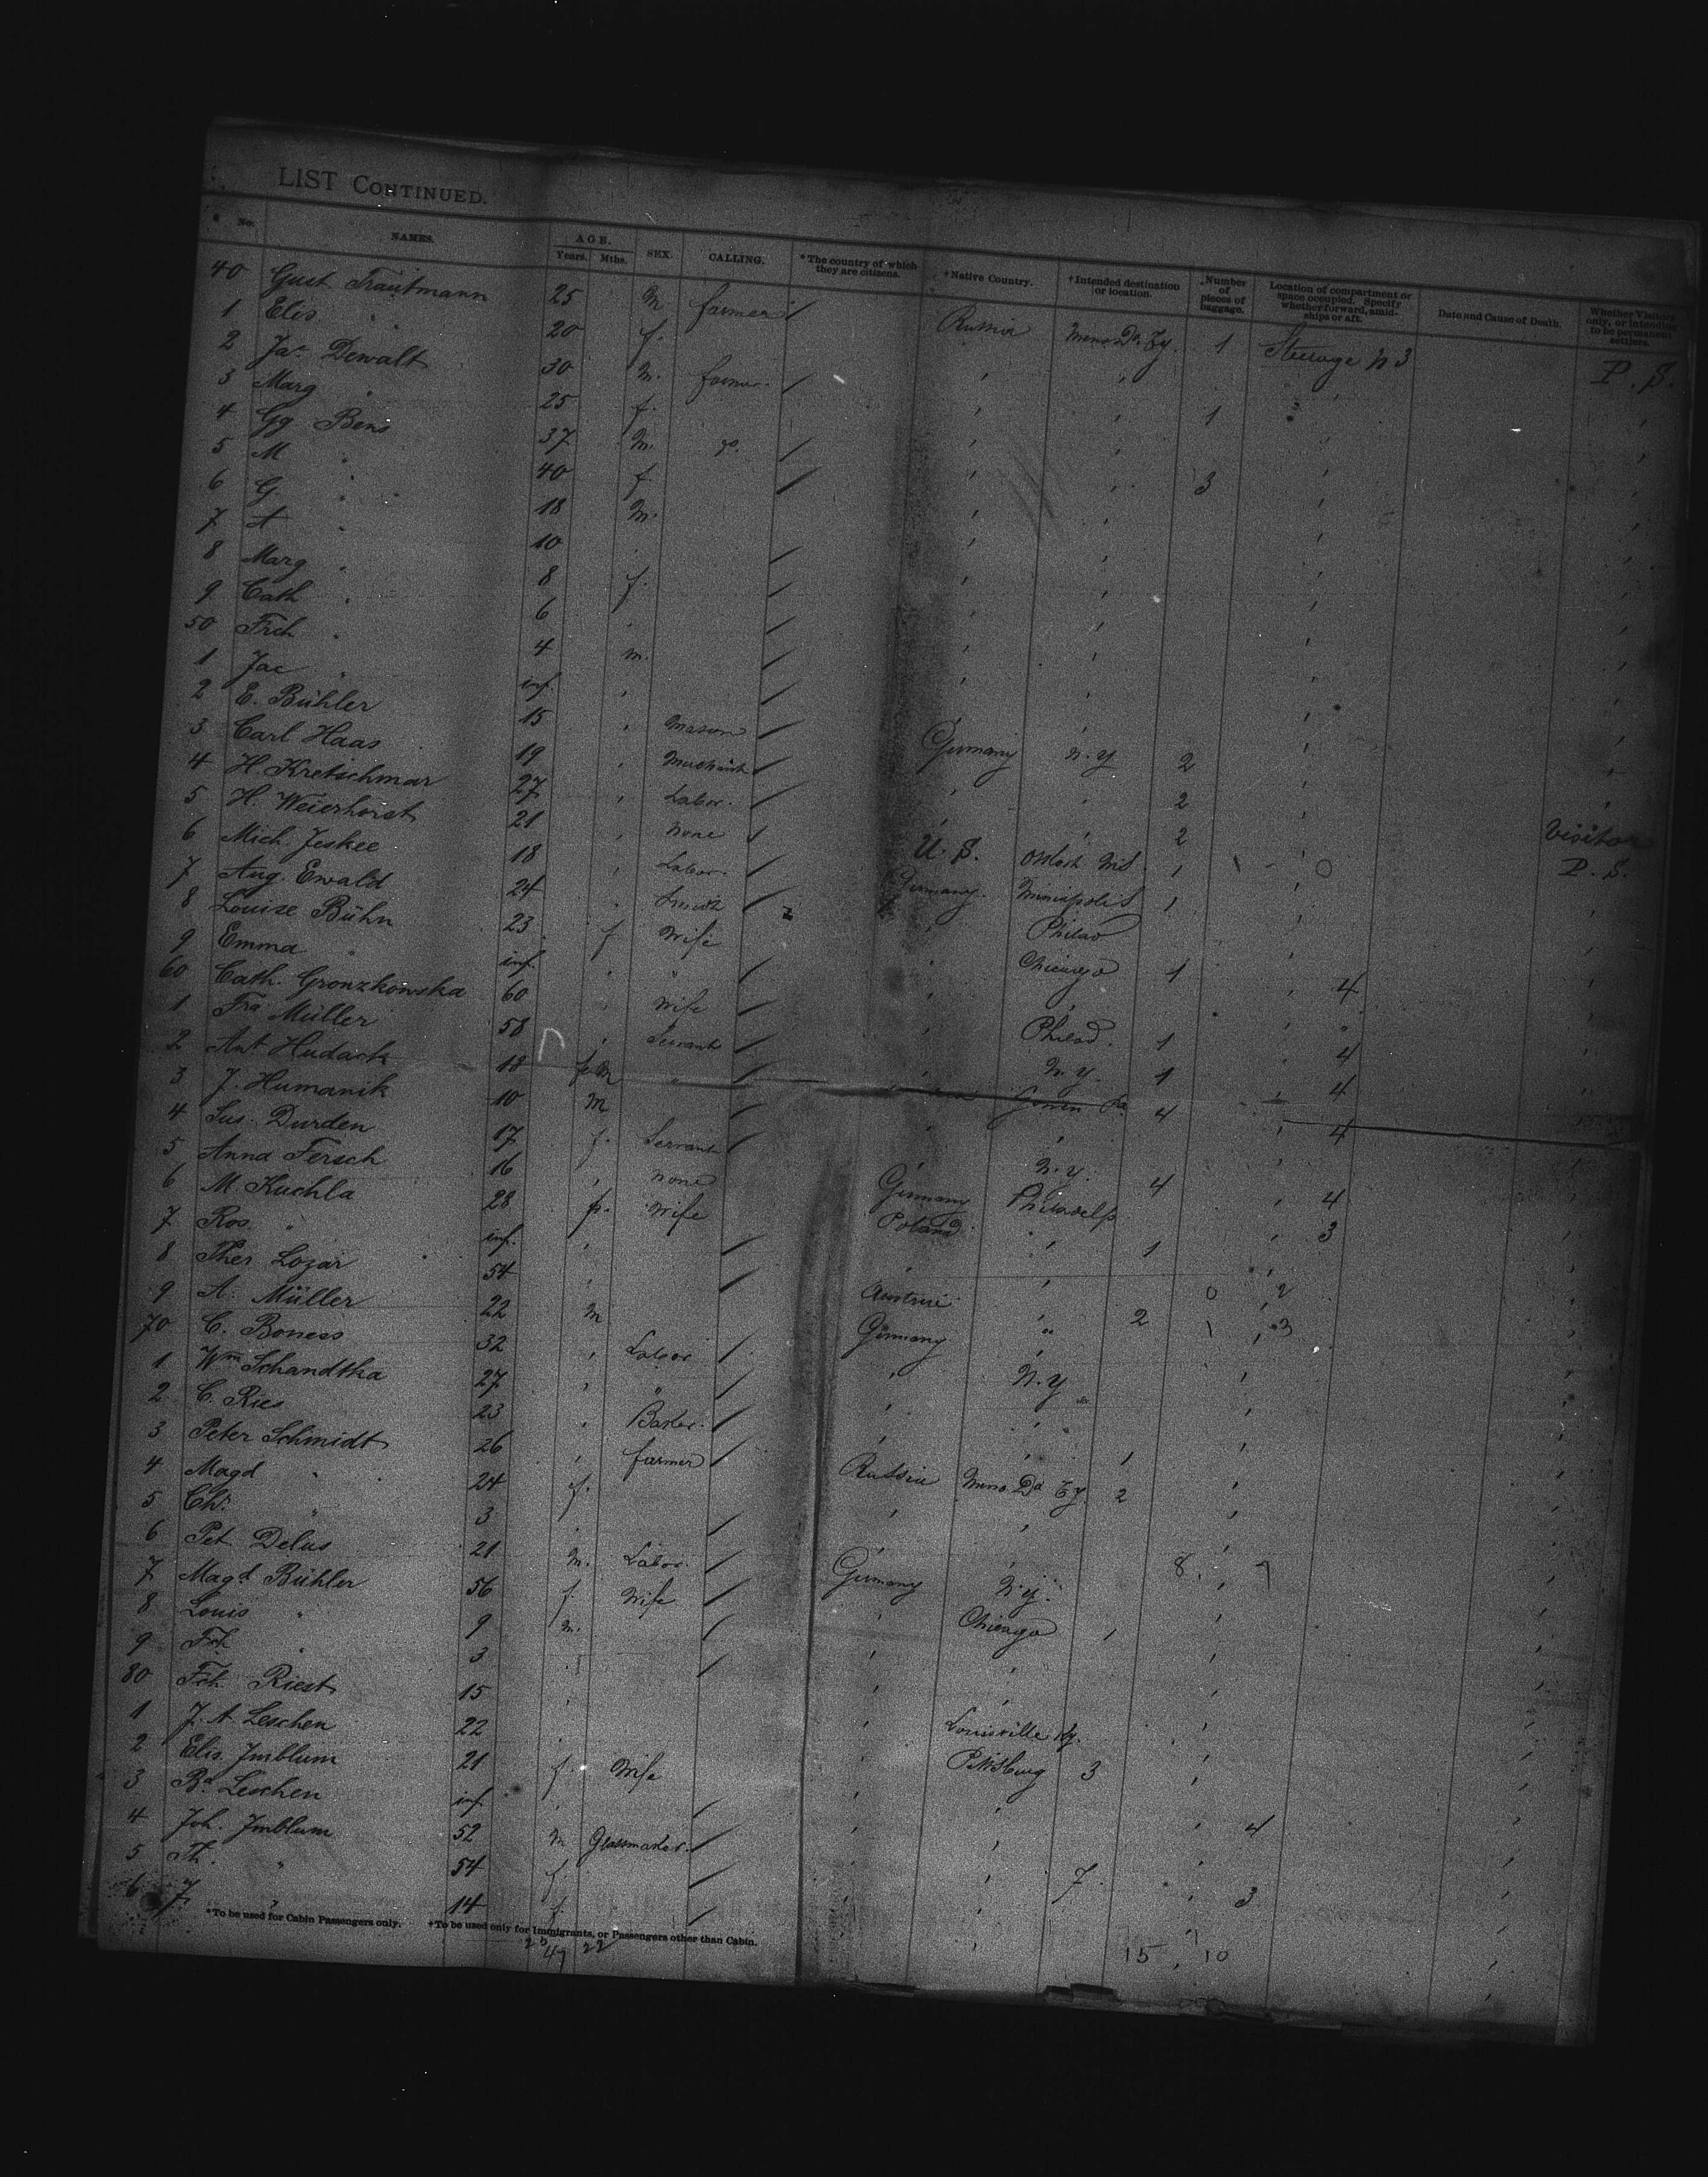 LIST CONTINUED.
No. NAMES. AGE. Years. Mths. SEX. CALLING. *The country of which they are citizens. †Native Country. †Intended destination or location. Number of pieces of baggage. Location of compartment or space occupied. Specify whether forward, amidships or aft. Date and Cause of Death. Whether Visitors only, or intending to be permanent settlers.
40 Gust Trautmann 25 M farmer / Russia Meno Da. Ty. 1 Steerage N 3 P. S.
1 Elis. " 20 f.
2 Jac Dewalt 30 M. farmer / 1
3 Marg " 25 f.
4 Gg Bens 37 M. do. / 3
5 M " 40 f. /
6 G " 18 M.
7 A " 10 /
8 Marg " 8 f. /
9 Cath " 6 /
50 Frch " 4 m. /
1 Jac " inf. /
2 E. Bühler 15 Mason / Germany N.Y 2
3 Carl Haas 19 / 2
4 H. Kretschmar 27 Labor. / 2 Visitor
5 H. Weierhorst 21 None / U. S. 1 P. S.
6 Mich. Jeskee 18 Labor. / Germany. 1
7 Aug. Ewald 24 Smith / Philad
8 Louise Bühn 23 f Wife Chicago 1 4
9 Emma " inf. " /
60 Cath. Gronzkowska 60 Wife / Philad. 1 4
1 Fra Müller 58 Servant / N.Y. 1 4
2 Ant Hudack 18 M " / 4 4
3 J. Humanik 10 M /
4 Sus. Durden 17 f. Servant / N.Y. 4 4
5 Anna Fersch 16 None Germany Philadelp 3
6 M. Kuchla 28 f. Wife Poland 1
7 Ros " inf. /
8 Ther Lozar 54 / Austria 2
9 A. Müller 22 M Germany " 3
70 C. Boness 32 Labor / N.Y
1 Wm Schandtka 27 " /
2 C. Ries 23 Baker. / 1
3 Peter Schmidt 26 farmer / Russia Meno Da Ty 2
4 Magd " 24 f.
5 Chr. " 3 /
6 Pet. Delus 21 M. Labor. / Germany N.Y.
7 Magd. Bühler 56 f. Wife / Chicago 1
8 Louis " 9 m. /
9 Frh " 3 /
80 Frh. Riest 15 Louisville Ky.
1 J. A. Leschen 22 Pittsburg 3
2 Elis. Imblum 21 f. Wife
3 Ba Leschen inf / 4
4 Joh. Imblum 52 M Glassmaker. / 7 3
5 Th. " 54 f. /
6 J. " 14 f. /
*To be used for Cabin Passengers only. †To be used only for Immigrants, or Passengers other than Cabin.
47 22 15 10